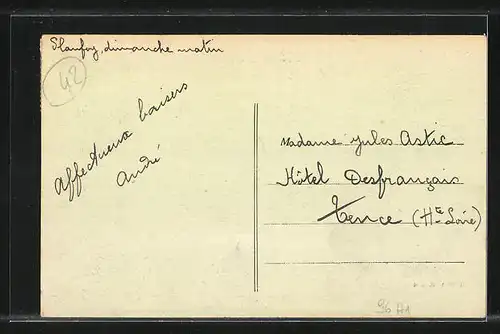 Planfoy, dimanche matin
42
Affectueux baisers
André
Madame Jules Astic
Hôtel Desfrançais
Tence (Hte-Loire)